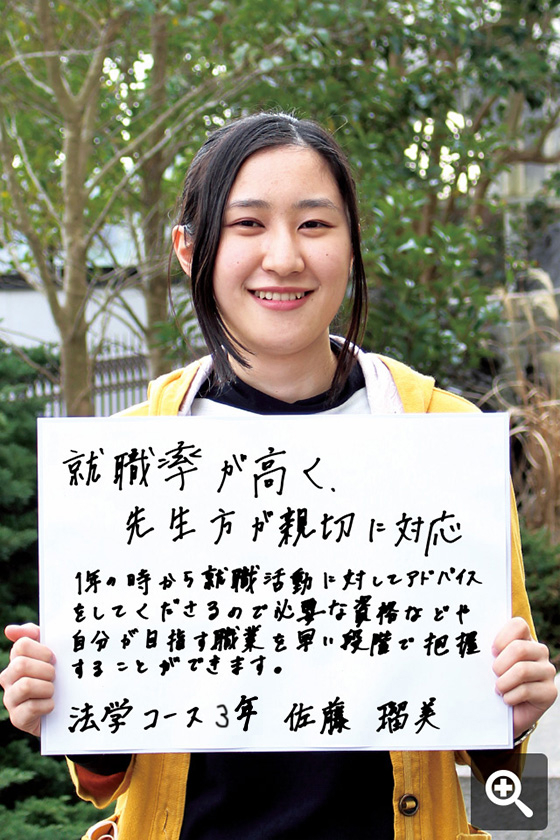 就職率が高く、
先生方が親切に対応
1年の時から就職活動に対してアドバイス
をしてくださるので必要な資格などや
自分が目指す職業を早い段階で把握
することができます。
法学コース3年 佐藤 瑠美